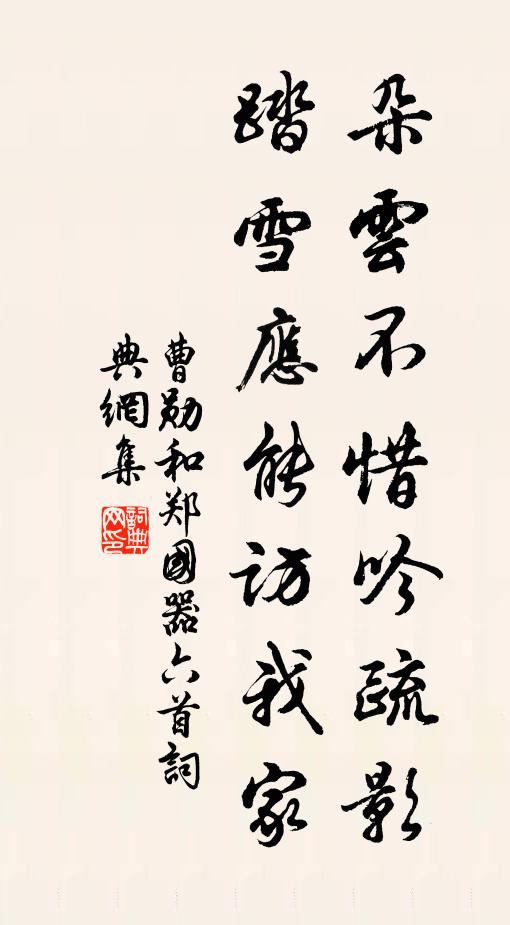 朵雲不惜吟疏影
踏雪應能訪我家
曹勛和郑國器六首詞
典網集
詞典网印